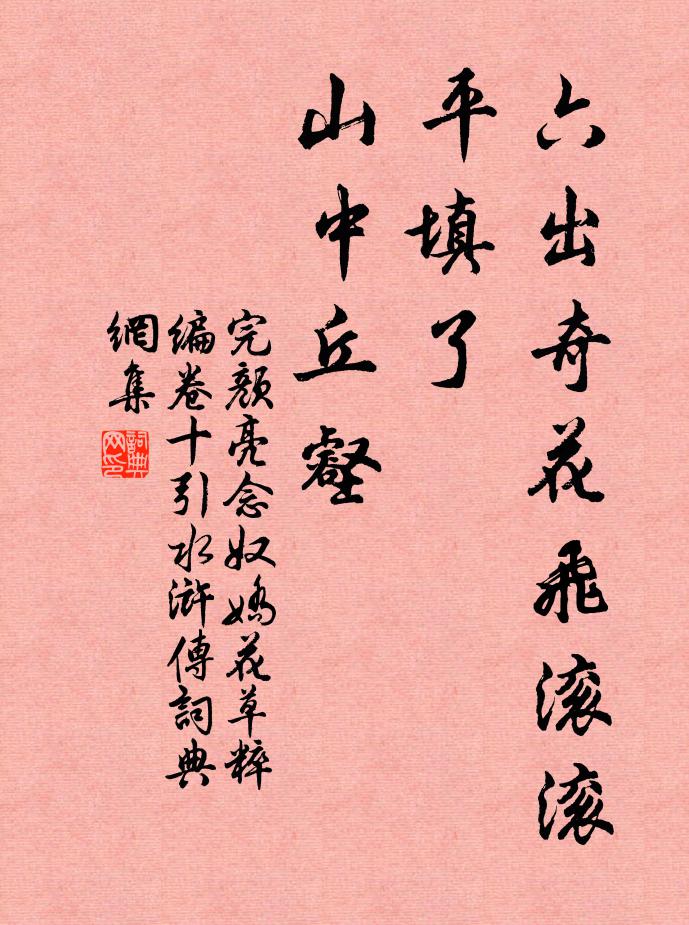 六出奇花飛滚滚
平填了
山中丘壑
完顏亮念奴嬌花草粹
編卷十引水滸傳詞典
網集
詞典
网印